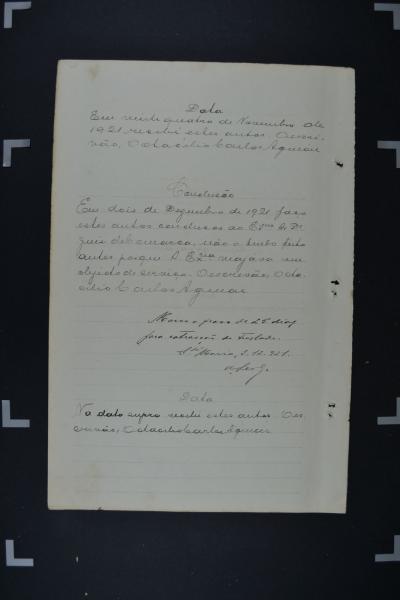 Data
Em vinte quatro de Novembro de
1921 recebi estes autos. O escri-
vão, Octacilio Carlos Aguiar
Conclusão
Em dois de Dezembro de 1921 faço
estes autos conclusos ao Exmo Sr. Dr.
Juiz de Comarca, não o tendo feito
antes porque S. Excia viajava em
objecto de serviço. O escrivão, Octa-
cilio Carlos Aguiar
Marco prazo de 20 dias
para extracção de traslado.
Sta Maria, 2.12.921.
Data
Na data supra recebi estes autos. O es-
crivão, Octacilio Carlos Aguiar